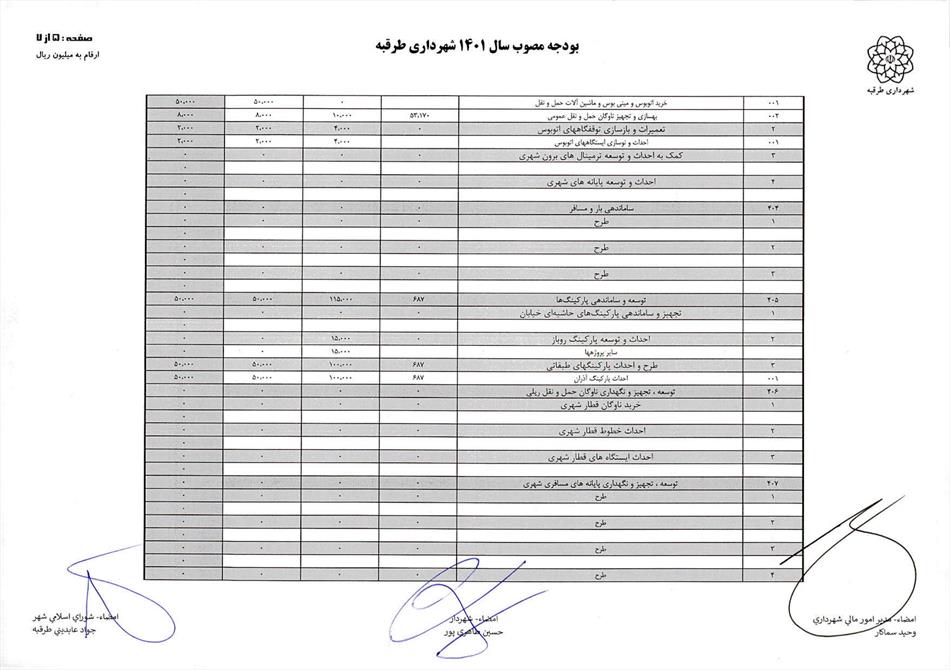 صفحه : ۵ از ۷
ارقام به میلیون ریال
بودجه مصوب سال ۱۴۰۱ شهرداری طرقبه
شهرداری طرقبه
۰۰۱ خرید اتوبوس و مینی بوس و ماشین آلات حمل و نقل ۰ ۵۰،۰۰۰ ۵۰،۰۰۰
۰۰۲ بهسازی و تجهیز ناوگان حمل و نقل عمومی ۵۳،۱۷۰ ۱۰،۰۰۰ ۸،۰۰۰ ۸،۰۰۰
۲ تعمیرات و بازسازی توقفگاههای اتوبوس ۰ ۴،۰۰۰ ۲،۰۰۰ ۲،۰۰۰
۰۰۱ احداث و نوسازی ایستگاههای اتوبوس ۴،۰۰۰ ۲،۰۰۰ ۲،۰۰۰
۳ کمک به احداث و توسعه ترمینال های برون شهری ۰ ۰ ۰ ۰
۰
۴ احداث و توسعه پایانه های شهری ۰ ۰ ۰ ۰
۰
۴۰۴ ساماندهی بار و مسافر ۰ ۰ ۰ ۰
۱ طرح ۰ ۰ ۰ ۰
۰
۲ طرح ۰ ۰ ۰ ۰
۰
۳ طرح ۰ ۰ ۰ ۰
۰
۴۰۵ توسعه و ساماندهی پارکینگ‌ها ۶۸۷ ۱۱۵،۰۰۰ ۵۰،۰۰۰ ۵۰،۰۰۰
۱ تجهیز و ساماندهی پارکینگ‌های حاشیه‌ای خیابان ۰ ۰ ۰ ۰
۰
۲ احداث و توسعه پارکینگ روباز ۰ ۱۵،۰۰۰ ۰ ۰
سایر پروژهها ۱۵،۰۰۰ ۰ ۰
۳ طرح و احداث پارکینگهای طبقاتی ۶۸۷ ۱۰۰،۰۰۰ ۵۰،۰۰۰ ۵۰،۰۰۰
۰۰۱ احداث پارکینگ آذران ۶۸۷ ۱۰۰،۰۰۰ ۵۰،۰۰۰ ۵۰،۰۰۰
۴۰۶ توسعه ، تجهیز و نگهداری ناوگان حمل و نقل ریلی ۰ ۰ ۰ ۰
۱ خرید ناوگان قطار شهری ۰ ۰ ۰ ۰
۰
۲ احداث خطوط قطار شهری ۰ ۰ ۰ ۰
۰
۳ احداث ایستگاه های قطار شهری ۰ ۰ ۰ ۰
۰
۴۰۷ توسعه ، تجهیز و نگهداری پایانه های مسافری شهری ۰ ۰ ۰ ۰
۱ طرح ۰ ۰ ۰ ۰
۰
۲ طرح ۰ ۰ ۰ ۰
۰
۳ طرح ۰ ۰ ۰ ۰
۰
۴ طرح ۰ ۰ ۰ ۰
امضاء- مدیر امور مالي شهرداري
وحید سماکار
امضاء- شهردار
حسین طاهری پور
امضاء- شوراي اسلامي شهر
جواد عابديني طرقبه